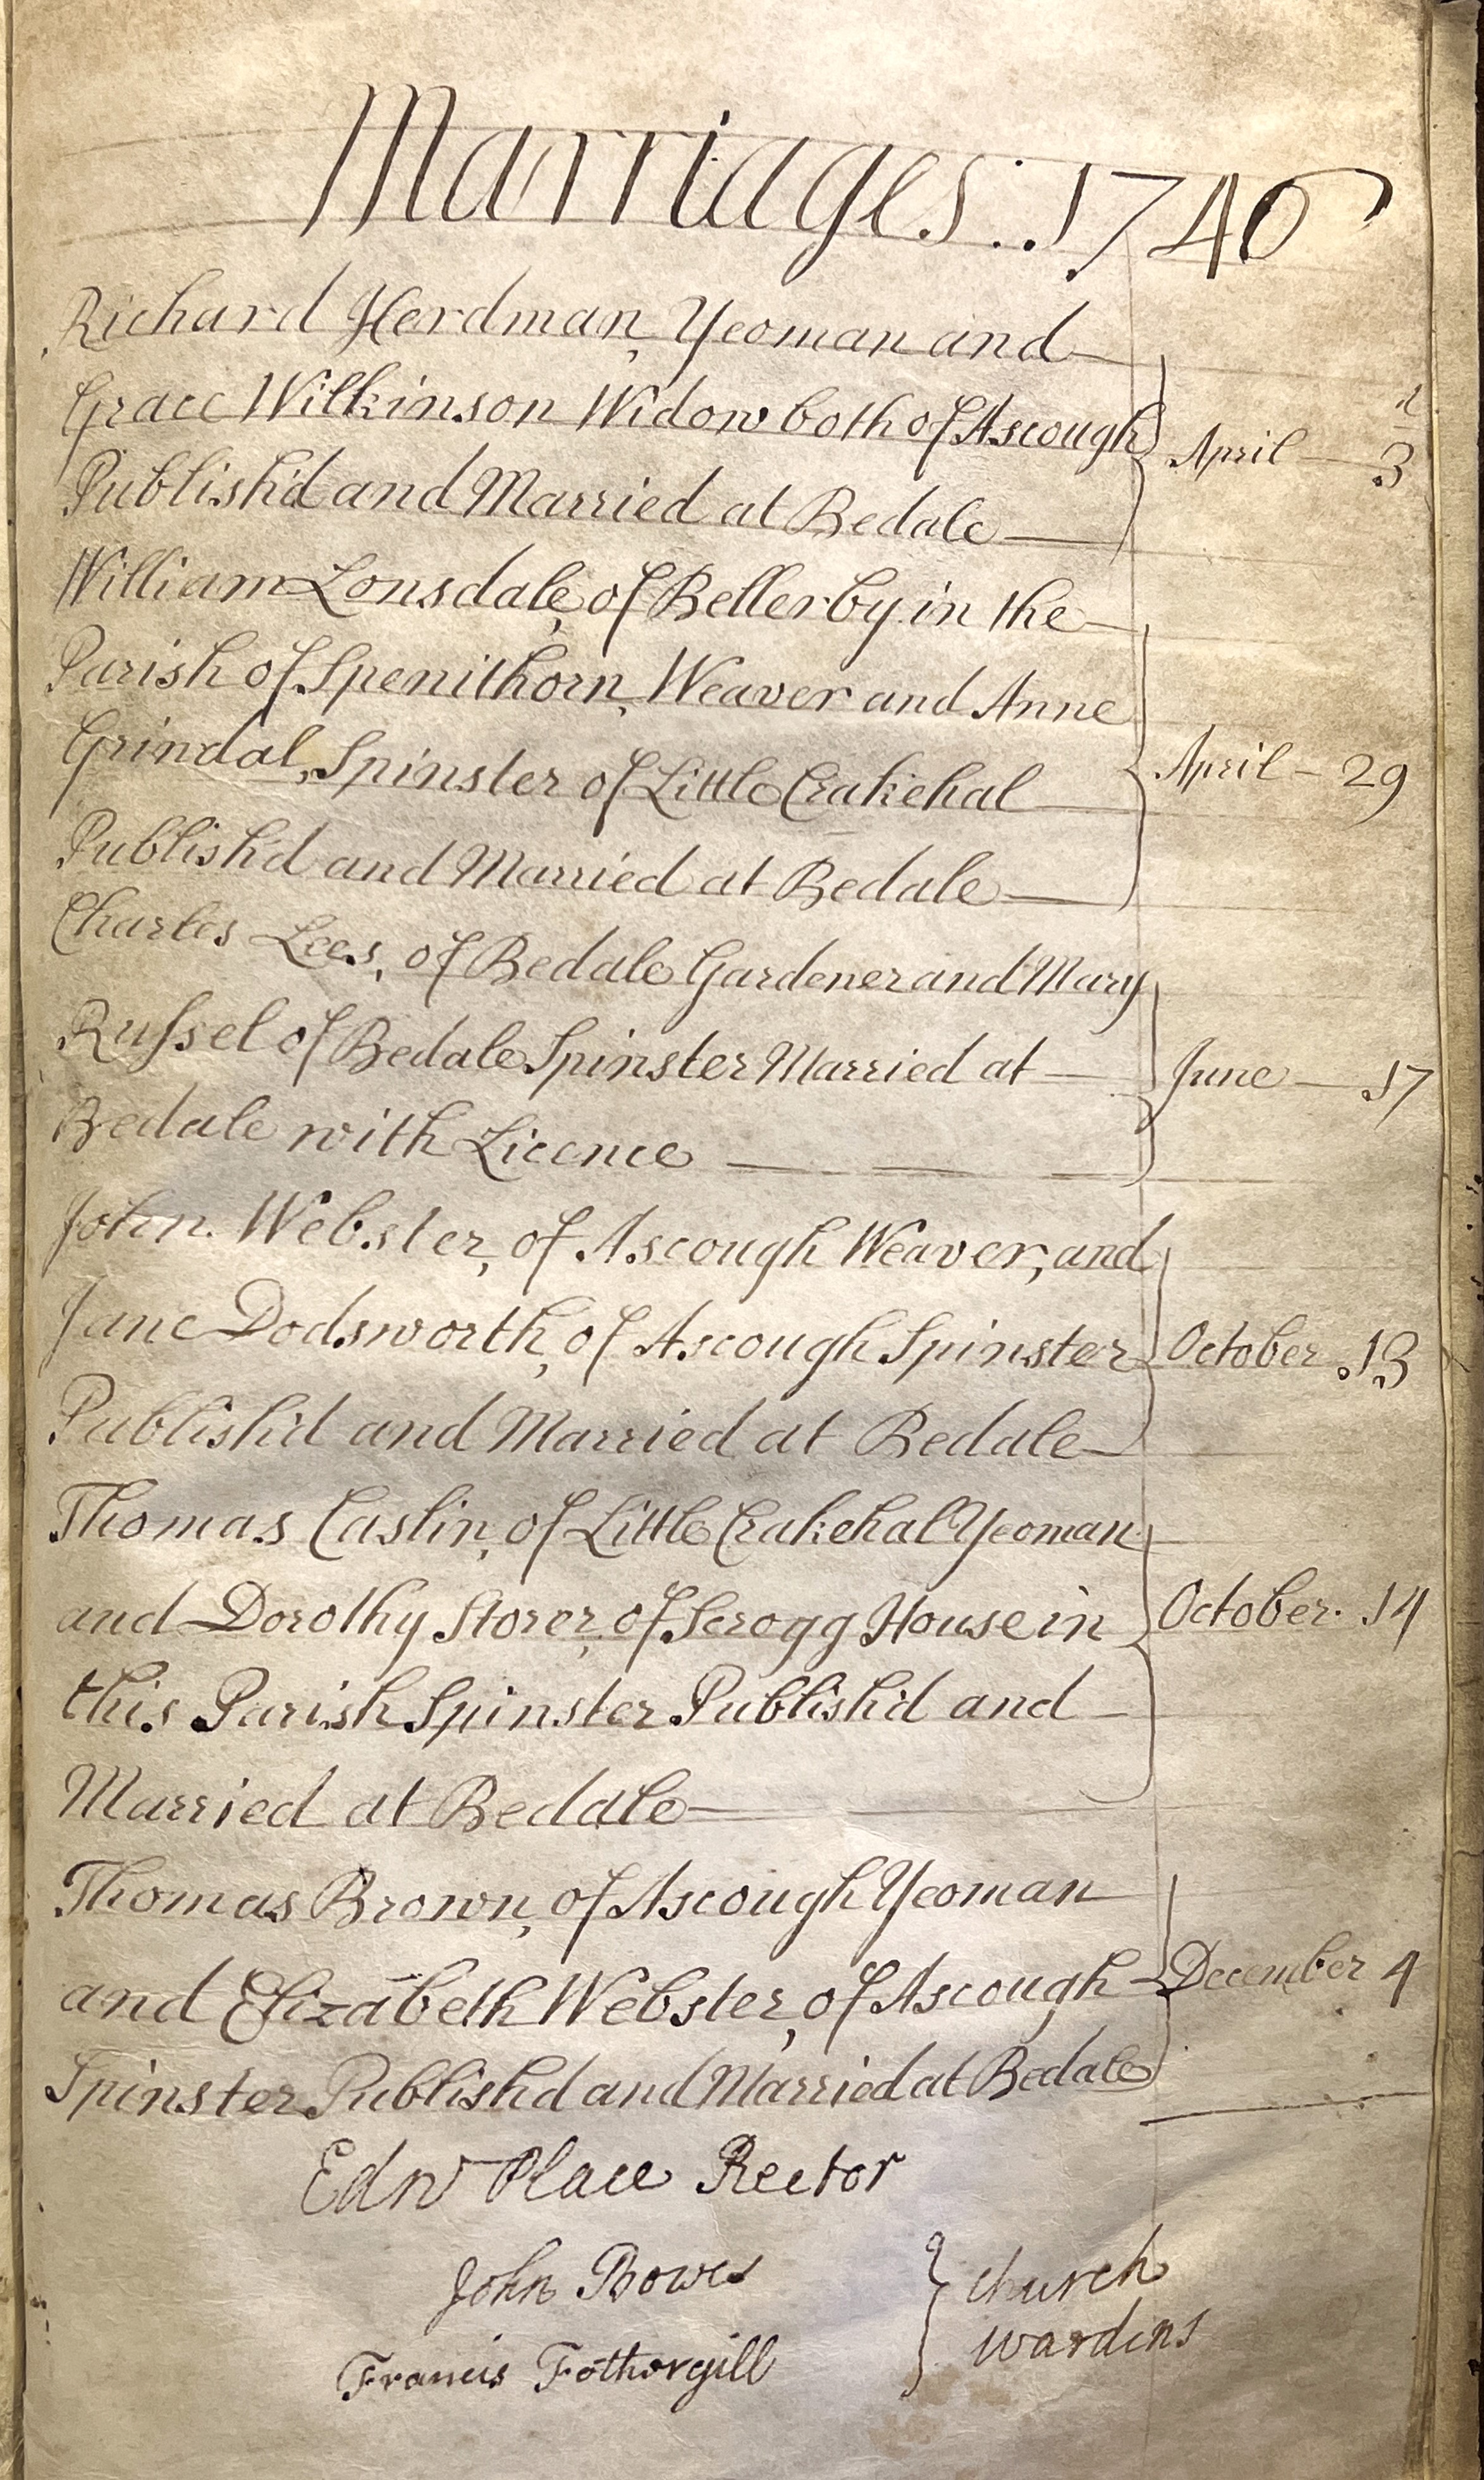 Marriages . . 1746
Richard Herdman, Yeoman and
Grace Wilkinson Widow both of Ascough
Publish'd and Married at Bedale
April 3d
William Lonsdale, of Bellerby in the
Parish of Spenithorn, Weaver and Anne
Grindal, Spinster of Little Crakehal
Publish'd and Married at Bedale
April - 29
Charles Lees, of Bedale Gardener and Mary
Russel of Bedale Spinster Married at
Bedale with Licence
June 17
John Webster, of Ascough Weaver, and
Jane Dodsworth, of Ascough Spinster
Publish'd and Married at Bedale
October 13
Thomas Caslin, of Little Crakehal Yeoman
and Dorothy Storer, of Scrogg House in
this Parish Spinster Publish'd and
Married at Bedale
October 14
Thomas Brown, of Ascough Yeoman
and Elizabeth Webster, of Ascough
Spinster Publish'd and Married at Bedale
December 4
Edwd Place Rector
John Bowes
Francis Fothergill
church
wardens